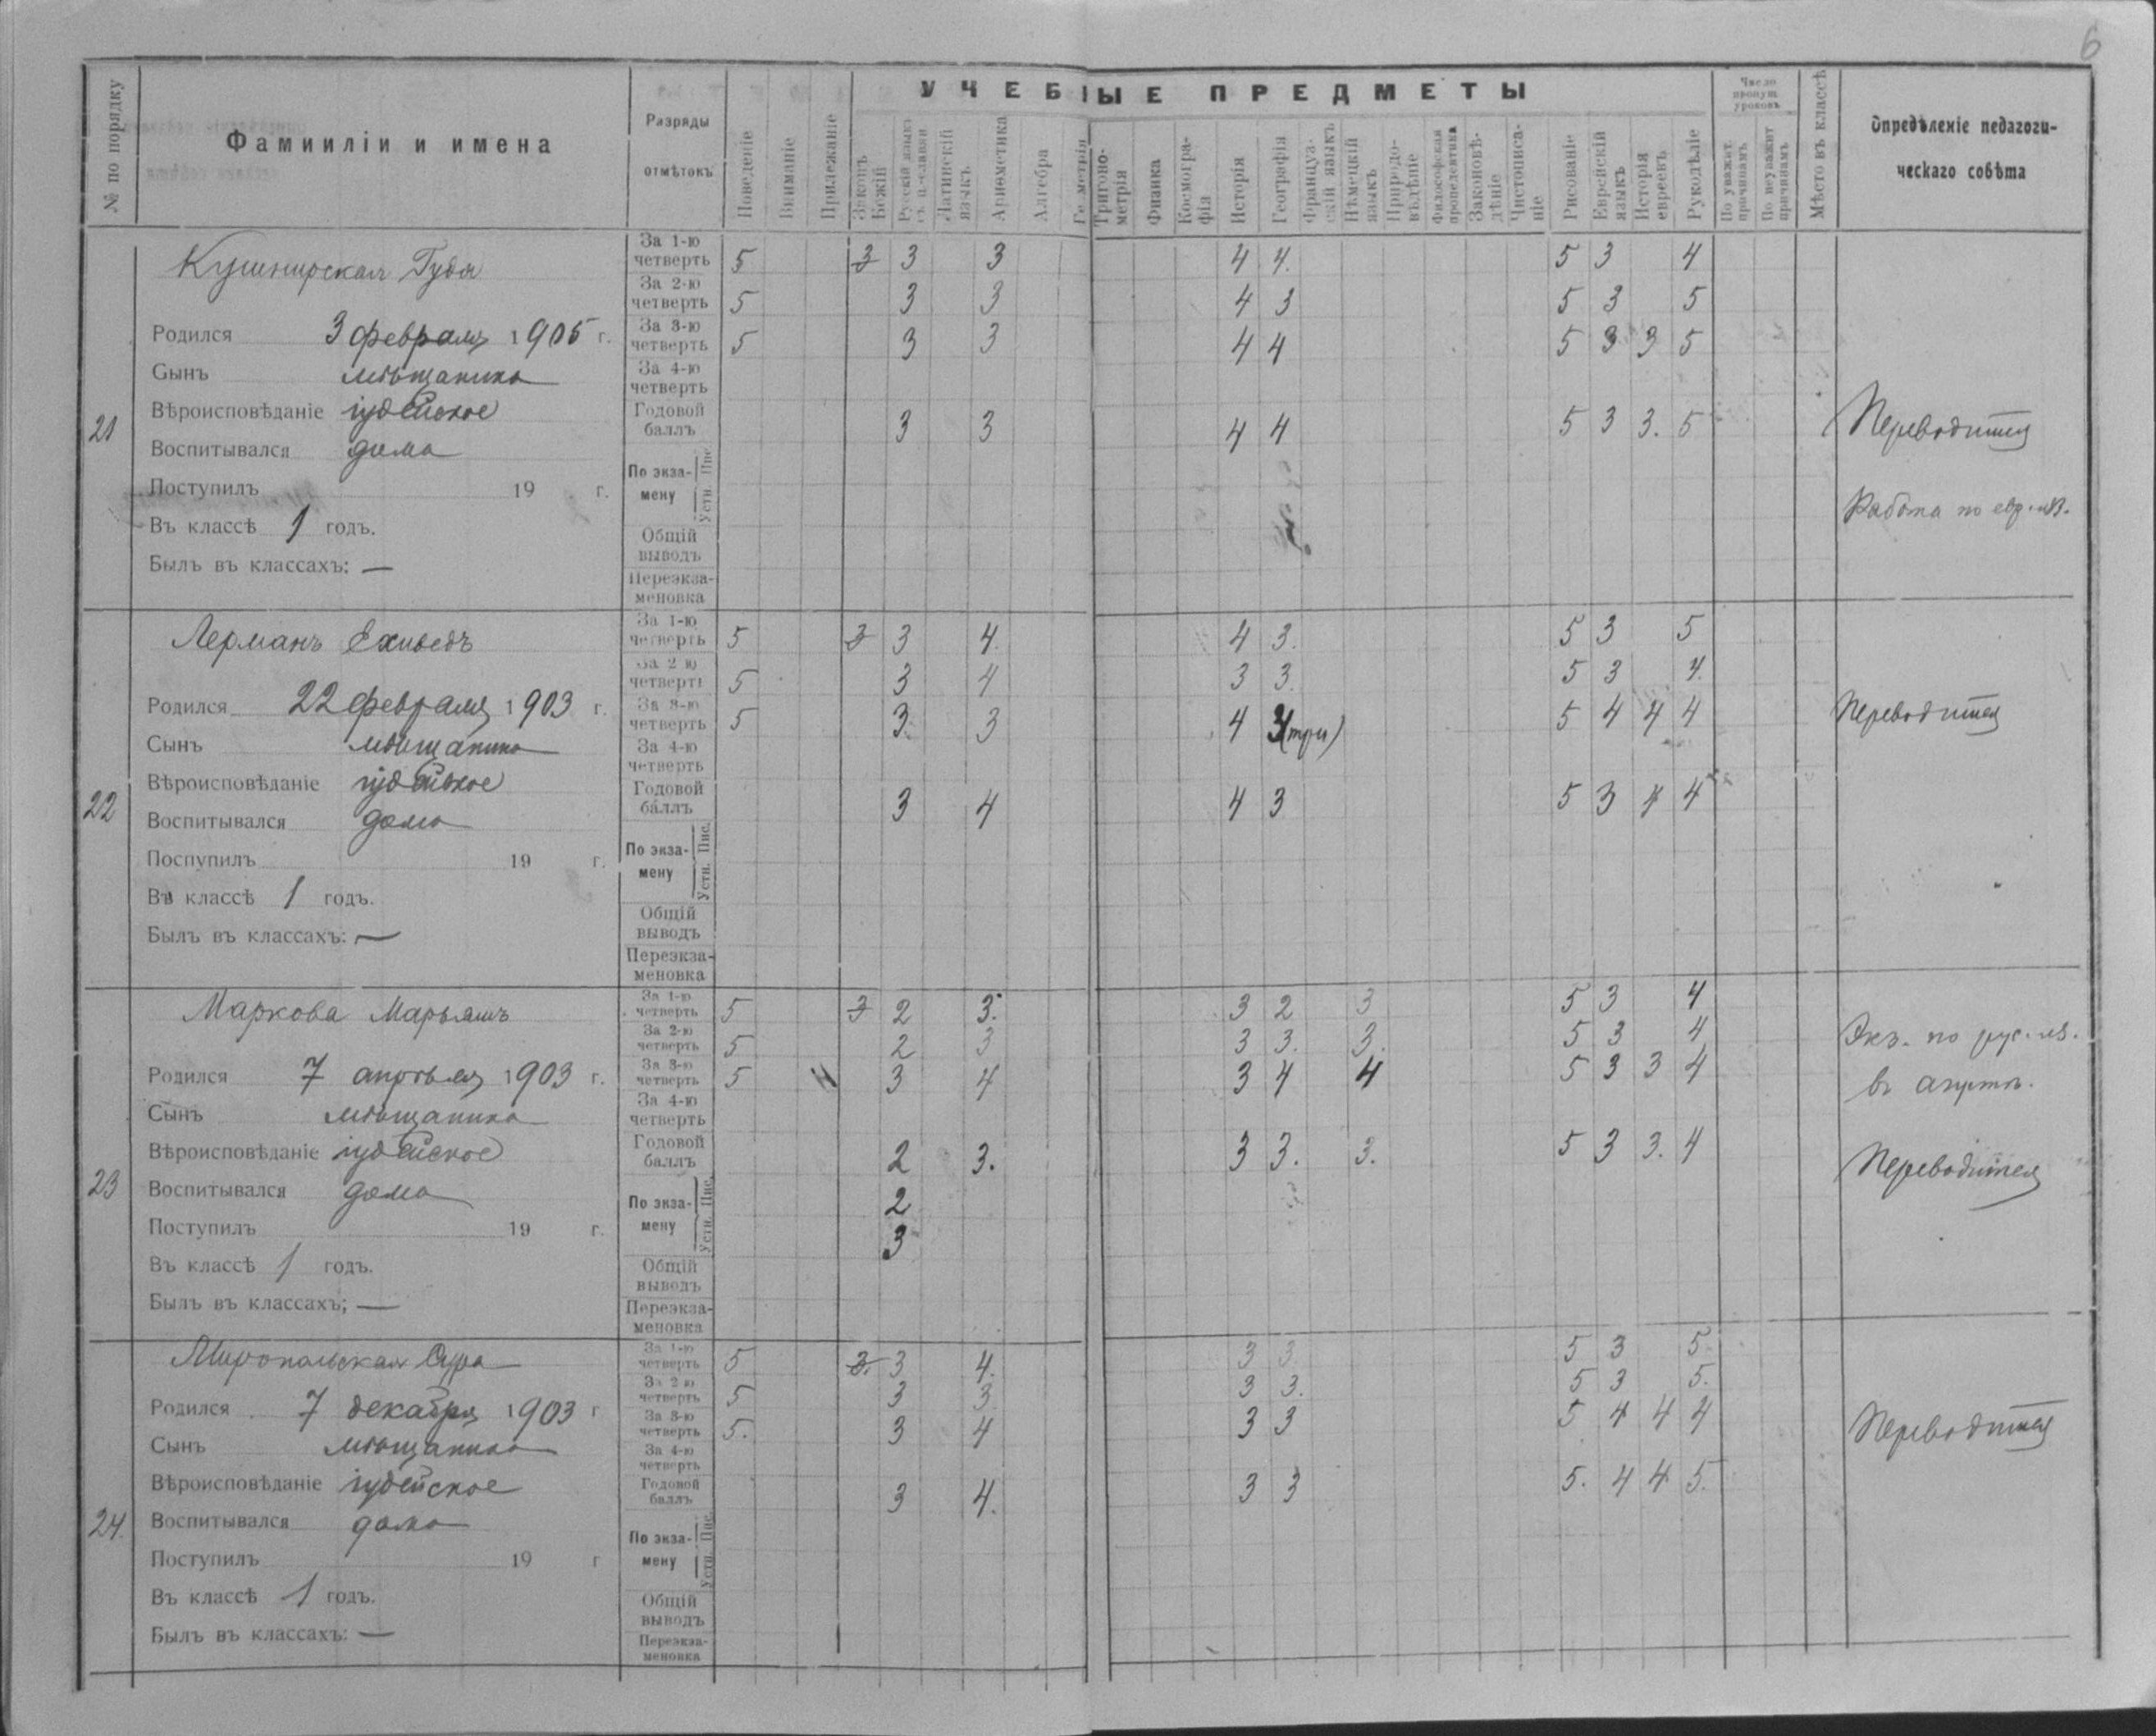 6
№ по порядку
Фамииліи и имена
Разряды отмѣтокъ
УЧЕБНЫЕ ПРЕДМЕТЫ
Поведеніе
Вниманіе
Прилежаніе
Законъ Божій
Русскій языкъ съ ц.-славян.
Латинскій языкъ
Ариѳметика
Алгебра
Геометрія
Тригоно-метрія
Физика
Космогра-фія
Исторія
Географія
Француз-скій языкъ
Нѣмецкій языкъ
Природо-вѣдѣніе
Философская пропедевтика
Законовѣ-дѣніе
Чистописа-ніе
Рисованіе
Еврейскій языкъ
Исторія евреевъ
Рукодѣліе
Число пропущ. уроковъ
По уважит. причинамъ
По неуважит причинамъ
Мѣсто въ классѣ
Опредѣленіе педагоги-
ческаго совѣта
21
Кушнирская Гудя
Родился 3 февраля 1905 г.
Сынъ мѣщанина
Вѣроисповѣданіе іудейское
Воспитывался дома
Поступилъ 19 г.
Въ классѣ 1 годъ.
Былъ въ классахъ: —
За 1-ю четверть 5 3 3 3 4 4. 5 3 4
За 2-ю четверть 5 3 3 4 3 5 3 5
За 3-ю четверть 5 3 3 4 4 5 3 3 5
За 4-ю четверть
Годовой баллъ 3 3 4 4 5 3 3. 5
По экза-мену Пис. Устн.
Общій выводъ
Переэкза-меновка
Переводится
Работа по евр. яз.
22
Лерманъ Ехиведъ
Родился 22 февраля 1903 г.
Сынъ мѣщанина
Вѣроисповѣданіе іудейское
Воспитывался дома
Поспупилъ 19 г.
Въ классѣ 1 годъ.
Былъ въ классахъ: —
За 1-ю четверть 5 3 3 4. 4 3. 5 3 5
За 2 ю четверть 5 3 4 3 3. 5 3 4.
За 3-ю четверть 5 3. 3 4 3 (три) 5 4 4 4
За 4-ю четверть
Годовой баллъ 3 4 4 3 5 3 4 4
По экза-мену Пис. Устн.
Общій выводъ
Переэкза-меновка
Переводится
23
Маркова Марьямъ
Родился 7 апрѣля 1903 г.
Сынъ мѣщанина
Вѣроисповѣданіе іудейское
Воспитывался дома
Поступилъ 19 г.
Въ классѣ 1 годъ.
Былъ въ классахъ; —
За 1-ю четверть 5 3 2 3. 3 2 3 5 3 4
За 2-ю четверть 5 2 3 3 3. 3. 5 3 4
За 3-ю четверть 5 3 4 3 4 4 5 3 3 4
За 4-ю четверть
Годовой баллъ 2 3. 3 3. 3. 5 3 3. 4
По экза-мену Пис. 2
Устн. 3
Общій выводъ
Переэкза-меновка
Экз. по рус. яз.
въ августѣ.
Переводится
24.
Миропольская Сура
Родился 7 декабря 1903 г
Сынъ мѣщанина
Вѣроисповѣданіе іудейское
Воспитывался дома
Поступилъ 19 г
Въ классѣ 1 годъ.
Былъ въ классахъ: —
За 1-ю четверть 5 3. 3 4. 3 3 5 3 5.
За 2 ю четверть 5 3 3 3 3. 5 3 5.
За 3-ю четверть 5. 3 4 3 3 5 4 4 4
За 4-ю четверть
Годовой баллъ 3 4. 3 3 5. 4 4 5.
По экза-мену Пис. Устн.
Общій выводъ
Переэкза-меновка
Переводится